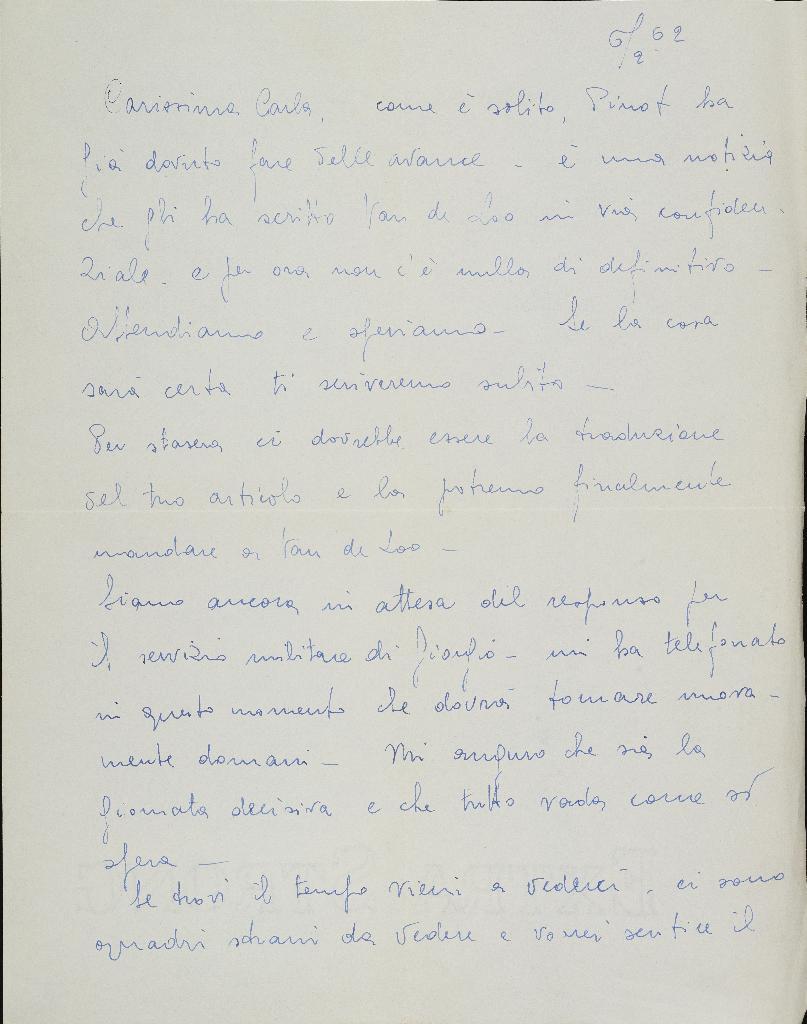 6/2 62
Carissima Carla, come è solito, Pinot ha
già dovuto fare delle avance - è una notizia
che gli ha scritto Van de Loo in via confiden-
ziale - e per ora non c'è nulla di definitivo -
Attendiamo e speriamo - Se la cosa
sarà certa ti scriveremo subito -
Per stasera ci dovrebbe essere la traduzione
del tuo articolo e la potremo finalmente
mandare a Van de Loo -
Siamo ancora in attesa del responso per
il servizio militare di Giorgio - mi ha telefonato
in questo momento che dovrà tornare nuova-
mente domani - Mi auguro che sia la
giornata decisiva e che tutto vada come si
spera -
Se trovi il tempo vieni a vederci - ci sono
quadri strani da vedere e vorrei sentire il